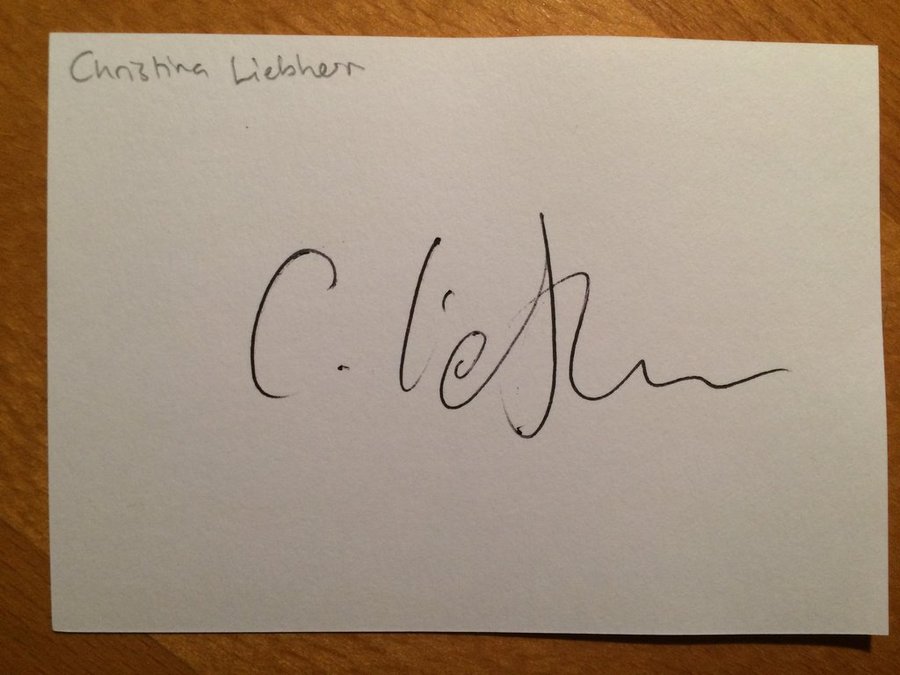 Christina Liebherr
C. Liebherr